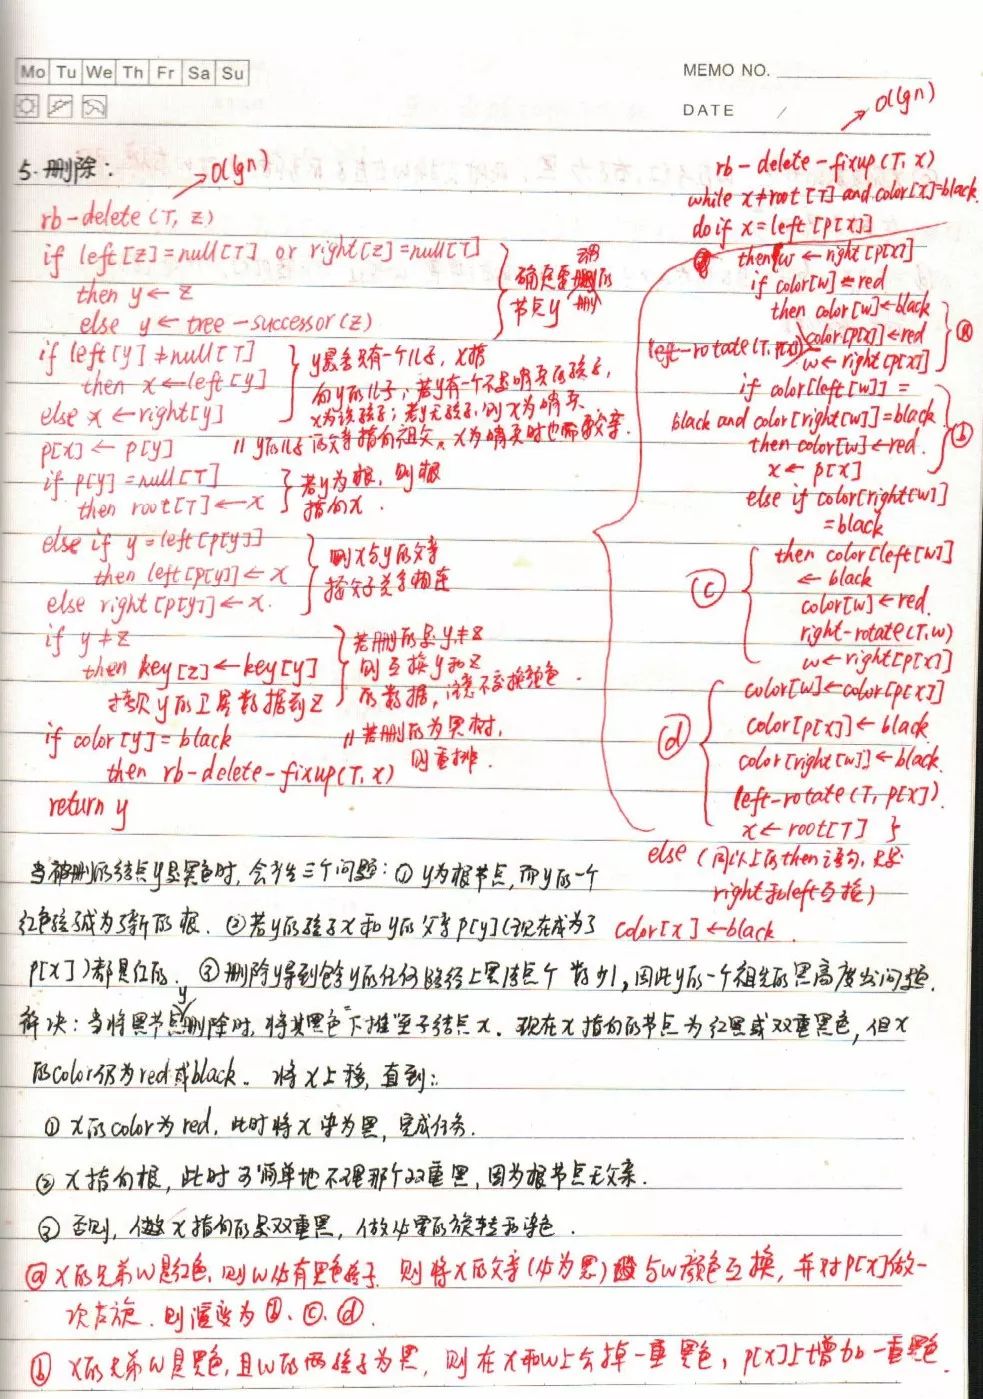 Mo Tu We Th Fr Sa Su
MEMO NO.
DATE /
5.删除:
→O(lgn)
rb-delete(T, z)
if left[z]=null[T] or right[z]=null[T]
then y←z
else y←tree-successor(z)
确定要删的
节点y
if left[y]≠null[T]
then x←left[y]
else x←right[y]
y最多只有一个儿子,x指
向y的儿子;若y有一个不是哨兵的孩子,
x为该孩子;若y无孩子,则x为哨兵.
p[x]←p[y]
// y的儿子的父亲指向祖父。x为哨兵时也需父亲.
if p[y]=null[T]
then root[T]←x
若y为根,则根
指向x.
else if y=left[p[y]]
then left[p[y]]←x
else right[p[y]]←x.
则x与y的父亲
按父子关系相连
if y≠z
then key[z]←key[y]
拷贝y的卫星数据到z
若删的是y≠z
则互换y和z
的数据,注意不变换颜色.
if color[y]=black
then rb-delete-fixup(T,x)
// 若删的为黑树,
则重排.
return y
→O(lgn)
rb-delete-fixup(T,x)
while x≠root[T] and color[x]=black.
do if x=left[p[x]]
then w←right[p[x]]
if color[w]=red
then color[w]←black
color[p[x]]←red
left-rotate(T,p[x])
w←right[p[x]]
ⓐ
if color[left[w]]=
black and color[right[w]]=black
then color[w]←red.
x←p[x]
ⓑ
else if color[right[w]]
=black
ⓒ
then color[left[w]]
←black
color[w]←red.
right-rotate(T,w)
w←right[p[x]]
ⓓ
color[w]←color[p[x]]
color[p[x]]←black
color[right[w]]←black.
left-rotate(T,p[x]).
x←root[T] }
else (同以上的then语句,只是
right和left互换)
color[x]←black.
当被删的结点y是黑色时,会产生三个问题:① y为根节点,而y的一个
红色孩子成为了新的根. ②若y的孩子x和y的父亲p[y](现在成为了
p[x])都是红的. ③删除y导致包含y的任何路径上黑结点个数少1,因此y的一个祖先的黑高度出问题.
解决:当将黑节点y删除时,将其黑色"下推"至子结点x.现在x指向的节点为红黑或双重黑色,但x
的color仍为red或black。将x上移,直到:
① x的color为red,此时将x染为黑,完成任务.
② x指向根,此时可简单地不理那个双重黑,因为根节点无父亲.
③ 否则,x指向的是双重黑,做必要的旋转和染色.
ⓐ x的兄弟w是红色,则w必有黑色孩子.则将x的父亲(必为黑)与w颜色互换,并对p[x]做一
次左旋.则演变为ⓑ、ⓒ、ⓓ.
ⓑ x的兄弟w是黑色,且w的两孩子为黑,则在x和w上去掉一重黑色,p[x]上增加一重黑色.